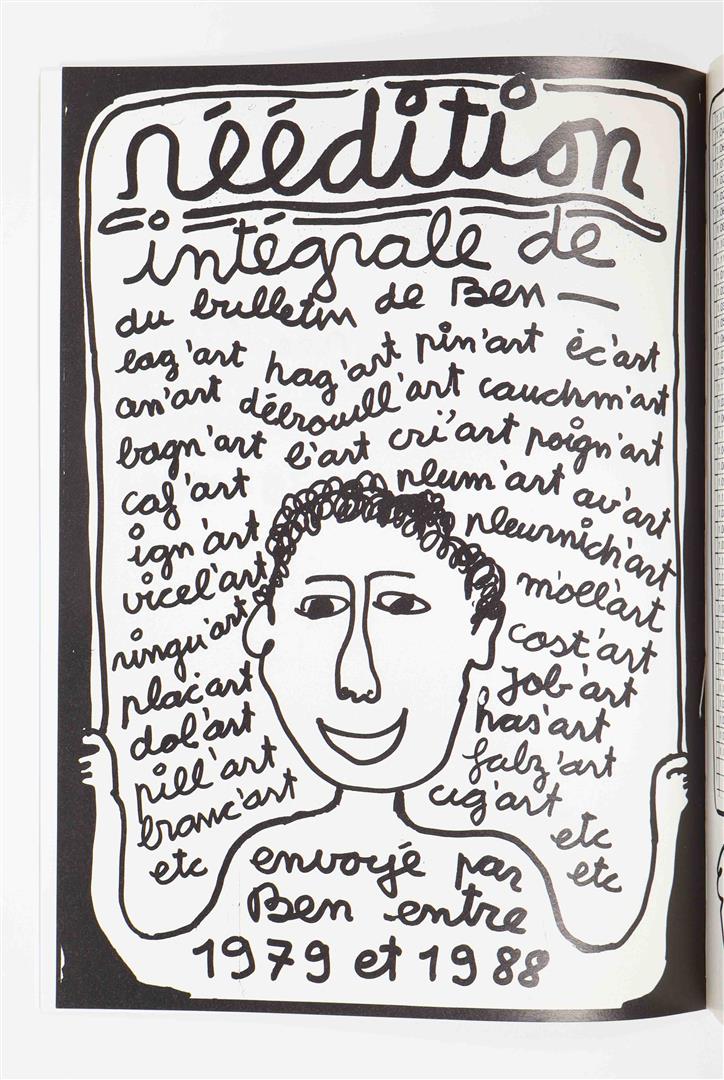 réédition
intégrale de
du bulletin de Ben —
laz'art haz'art pin'art éc'art
an'art débrouill'art cauchm'art
bagn'art l'art cri'art poign'art
caf'art plum'art av'art
ign'art pleurnich'art
vicel'art m'oll'art
ringu'art cost'art
plac'art Job'art
dol'art has'art
pill'art falz'art
branc'art cig'art
etc etc
etc
envoyé par
Ben entre
1979 et 1988